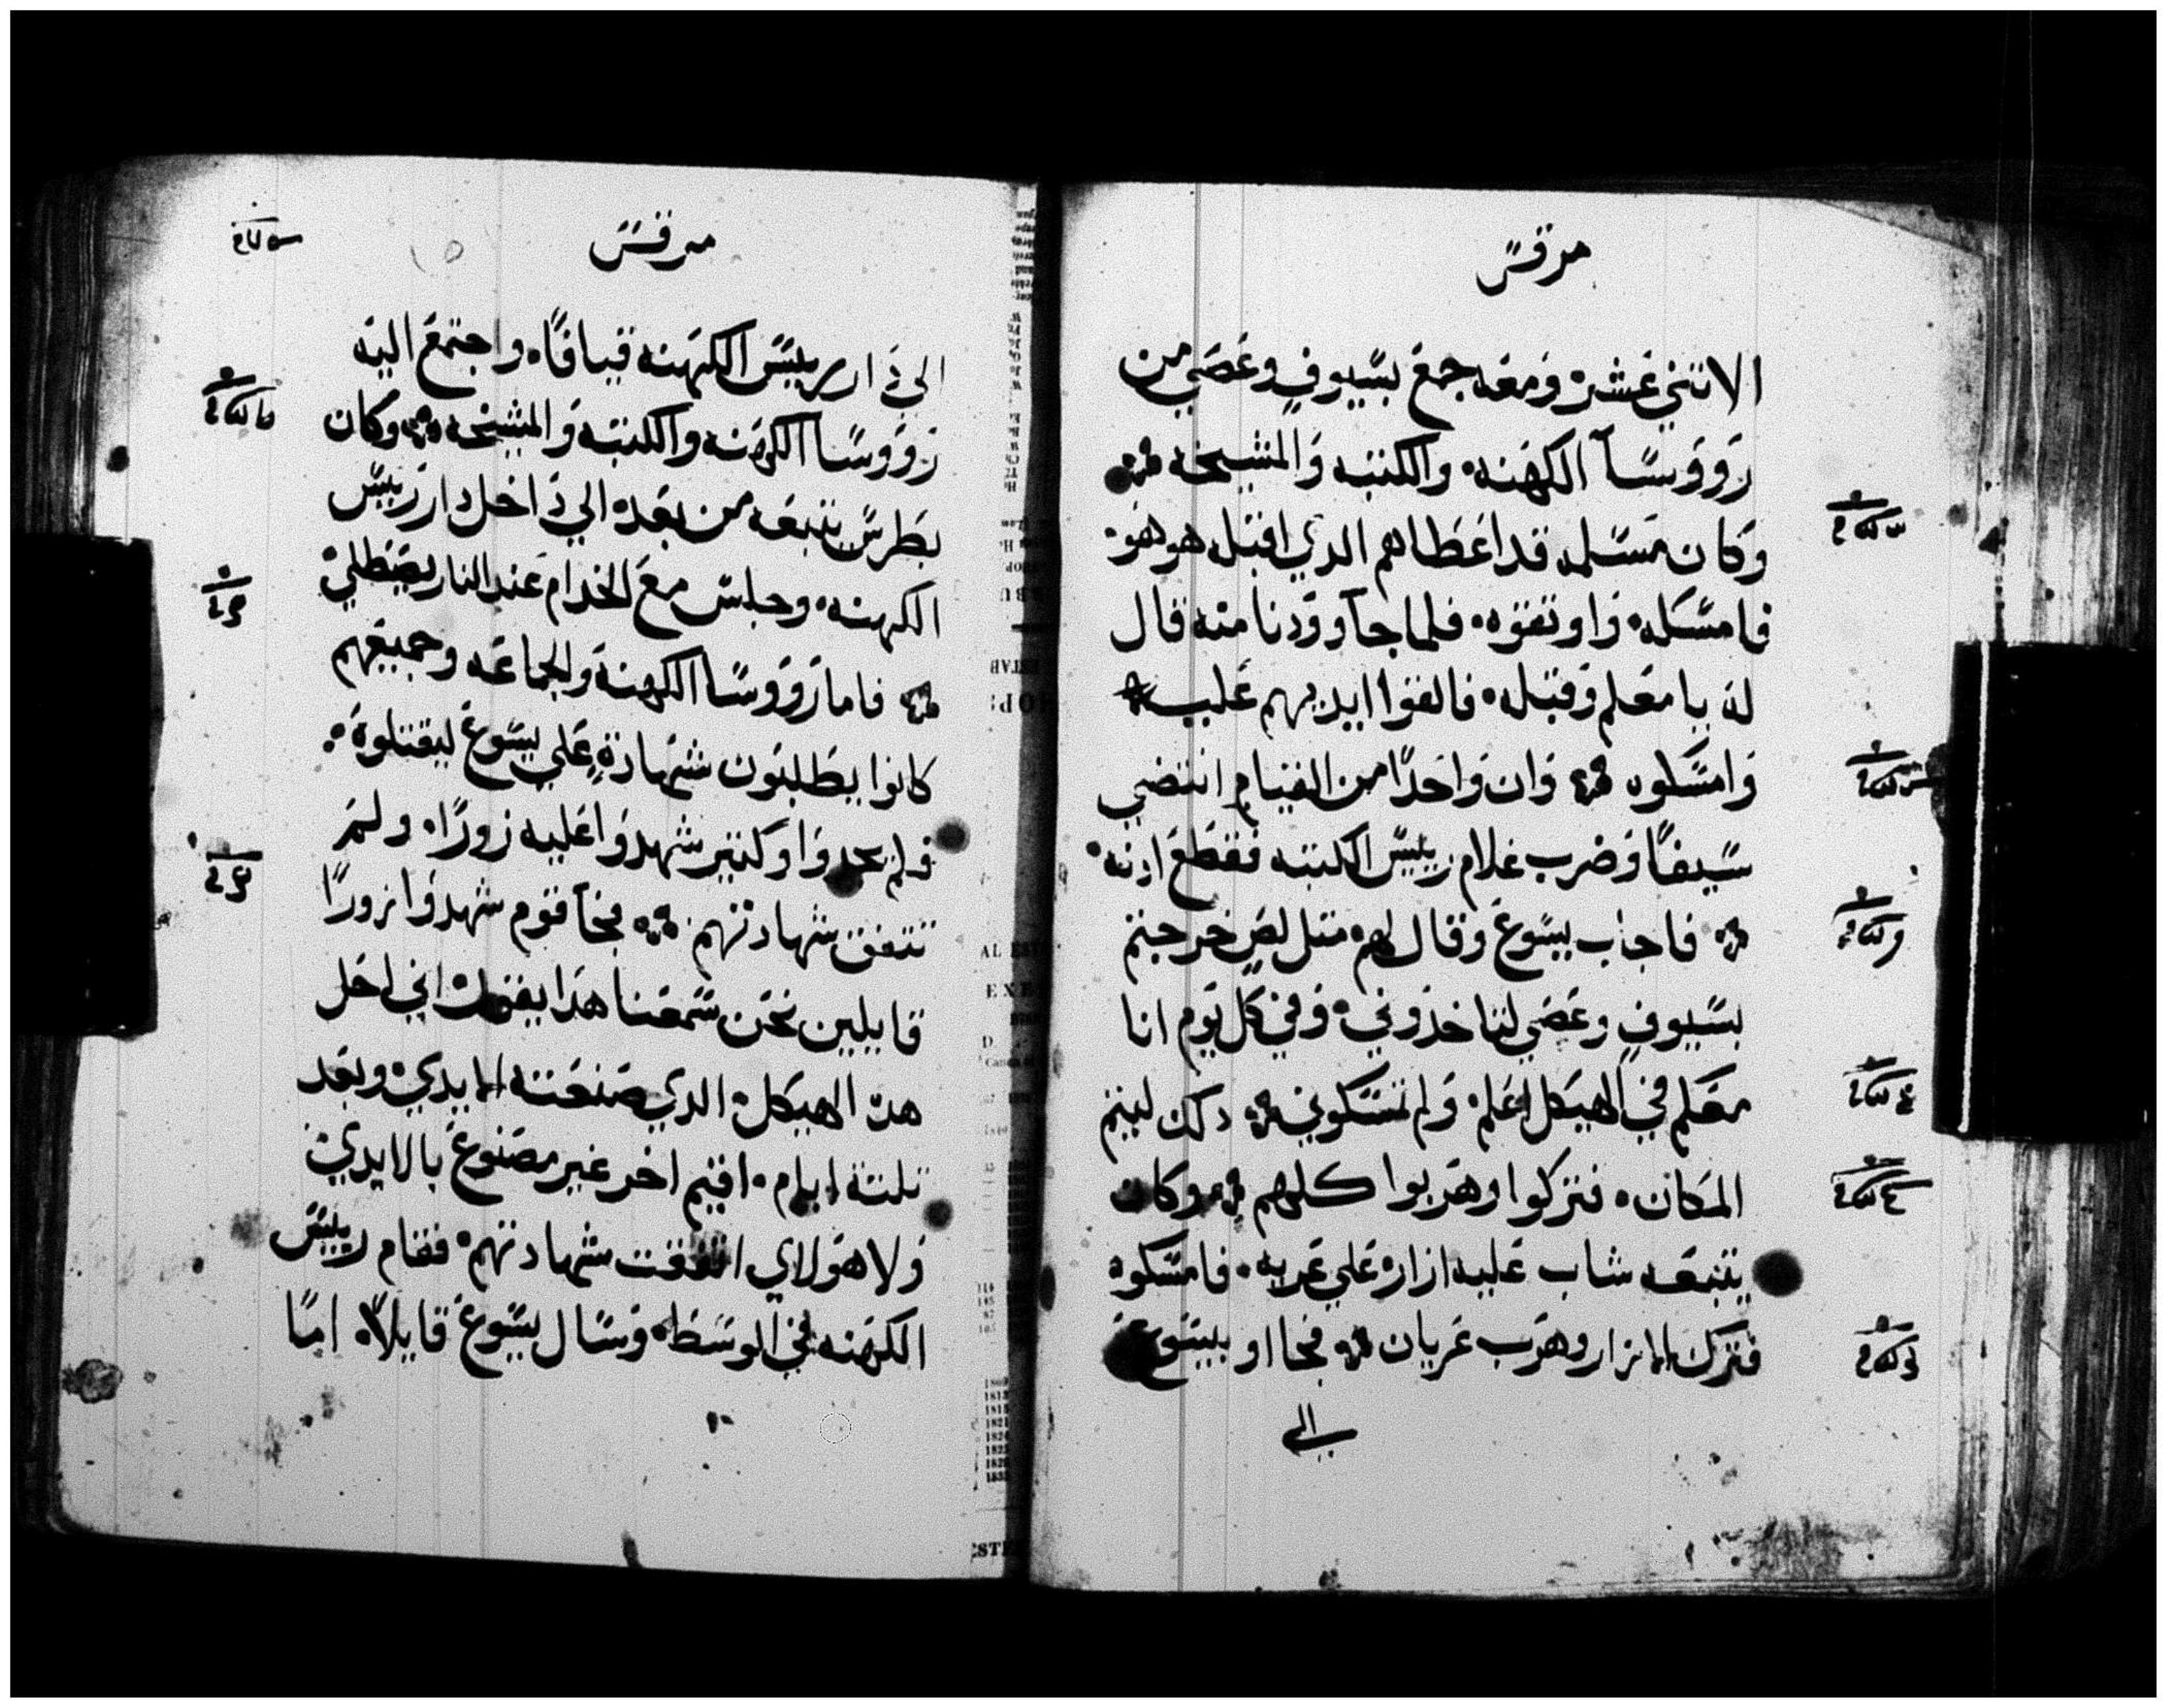 مرقس
الاتني عشره ومعه جمع بسيوف وعصي من
رووسآ الكهنه والكتبه والمشيخه
وكان مسلمه قد اعطاهم الدي اقبله هو هو
فامسكه واوتقوه فلما جآ ودنا منه قال
له يا معلم وقبله فالقوا ايديهم عليه
وامسكوه وان واحدًا من القيام انتضي
سيفًا وضرب غلام رييس الكتبه فقطع ادنه
فاجاب يسوع وقال لهم متل لص خرجتم
بسيوف وعصي لتاخدوني وفي كل يوم انا
معكم في الهيكل اعلم ولم تمسكوني لكن ليتم
المكان فتركوا وهربوا كلهم وكان
يتبعه شاب عليه ازاره علي عريه فامسكوه
فترك الازار وهرب عريان فجااو بيسوع
الي
مرقس
الي دار رييس الكهنه قيافا واجتمع اليه
رووسا الكهنه والكتبه والمشيخه وكان
بطرس يتبعه من بعده الي داخل دار رييس
الكهنه وجلس مع الخدام عند النار يصطلي
فاما رووسا الكهنه والجماعه وجميعهم
كانوا يطلبون شهادة علي يسوع ليقتلوه
ولم يجدوا وكتير شهدوا عليه زورًا ولم
تتفق شهادتهم فجآ قوم شهدوا زورًا
قايلين نحن سمعنا هدا يقول اني احل
هدا الهيكل الدي صنعته الايدي وبعد
تلتة ايام اقيم اخر غير مصنوع بالايدي
ولا هولاي اتفقت شهادتهم فقام رييس
الكهنه في الوسط وسال يسوع قايلاً اما